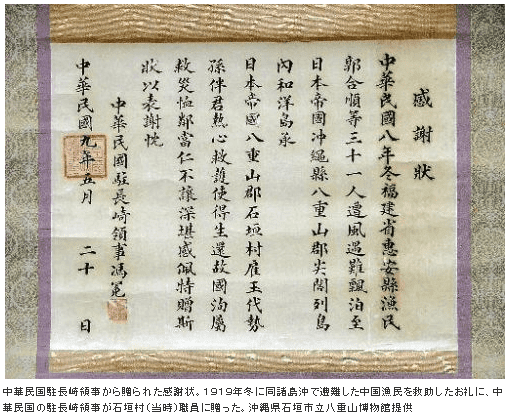 感謝狀
中華民國八年冬福建省惠安縣漁民
郭合順等三十一人遭風遇難飄泊至
日本帝國沖繩縣八重山郡尖閣列島
內和洋島承
日本帝國八重山郡石垣村雇玉代勢
孫伴君熱心救護使得生還故國洵屬
救災恤鄰當仁不讓深堪感佩特贈斯
狀以表謝忱
中華民國駐長崎領事馮冕
中華民國九年五月 二十 日
中華民国駐長崎領事から贈られた感謝状。1919年冬に同諸島沖で遭難した中国漁民を救助したお礼に、中
華民国の駐長崎領事が石垣村(当時)職員に贈った。沖縄県石垣市立八重山博物館提供